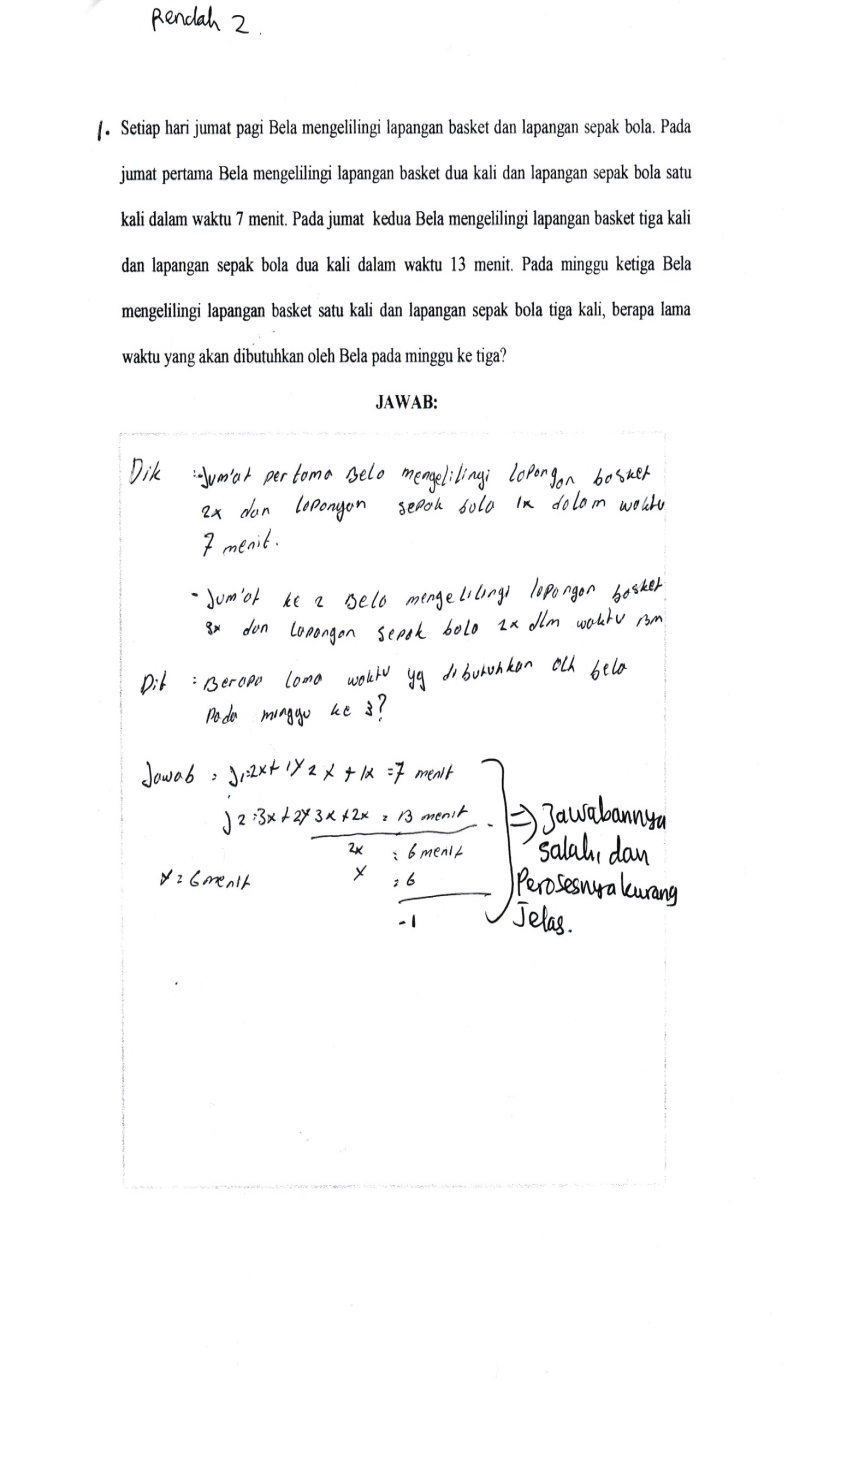 Rendah 2.
1. Setiap hari jumat pagi Bela mengelilingi lapangan basket dan lapangan sepak bola. Pada
jumat pertama Bela mengelilingi lapangan basket dua kali dan lapangan sepak bola satu
kali dalam waktu 7 menit. Pada jumat kedua Bela mengelilingi lapangan basket tiga kali
dan lapangan sepak bola dua kali dalam waktu 13 menit. Pada minggu ketiga Bela
mengelilingi lapangan basket satu kali dan lapangan sepak bola tiga kali, berapa lama
waktu yang akan dibutuhkan oleh Bela pada minggu ke tiga?
JAWAB:
Dik :-Jum'at pertama Bela mengelilingi lapangan basket
2x dan lapangan sepak bola 1x dalam waktu
7 menit.
- Jum'at ke 2 Bela mengelilingi lapangan basket
3x dan lapangan sepak bola 2x dlm waktu 13m
Dit : Berapa lama waktu yg dibutuhkan olh bela
Pada minggu ke 3?
Jawab : J1:2x+1y 2x + 1x =7 menit
J2:3x+2y 3x+2x = 13 menit -
2x : 6 menit
x = 6menit x : 6
-1
⇒ Jawabannya
salah, dan
Perosesnya kurang
Jelas.